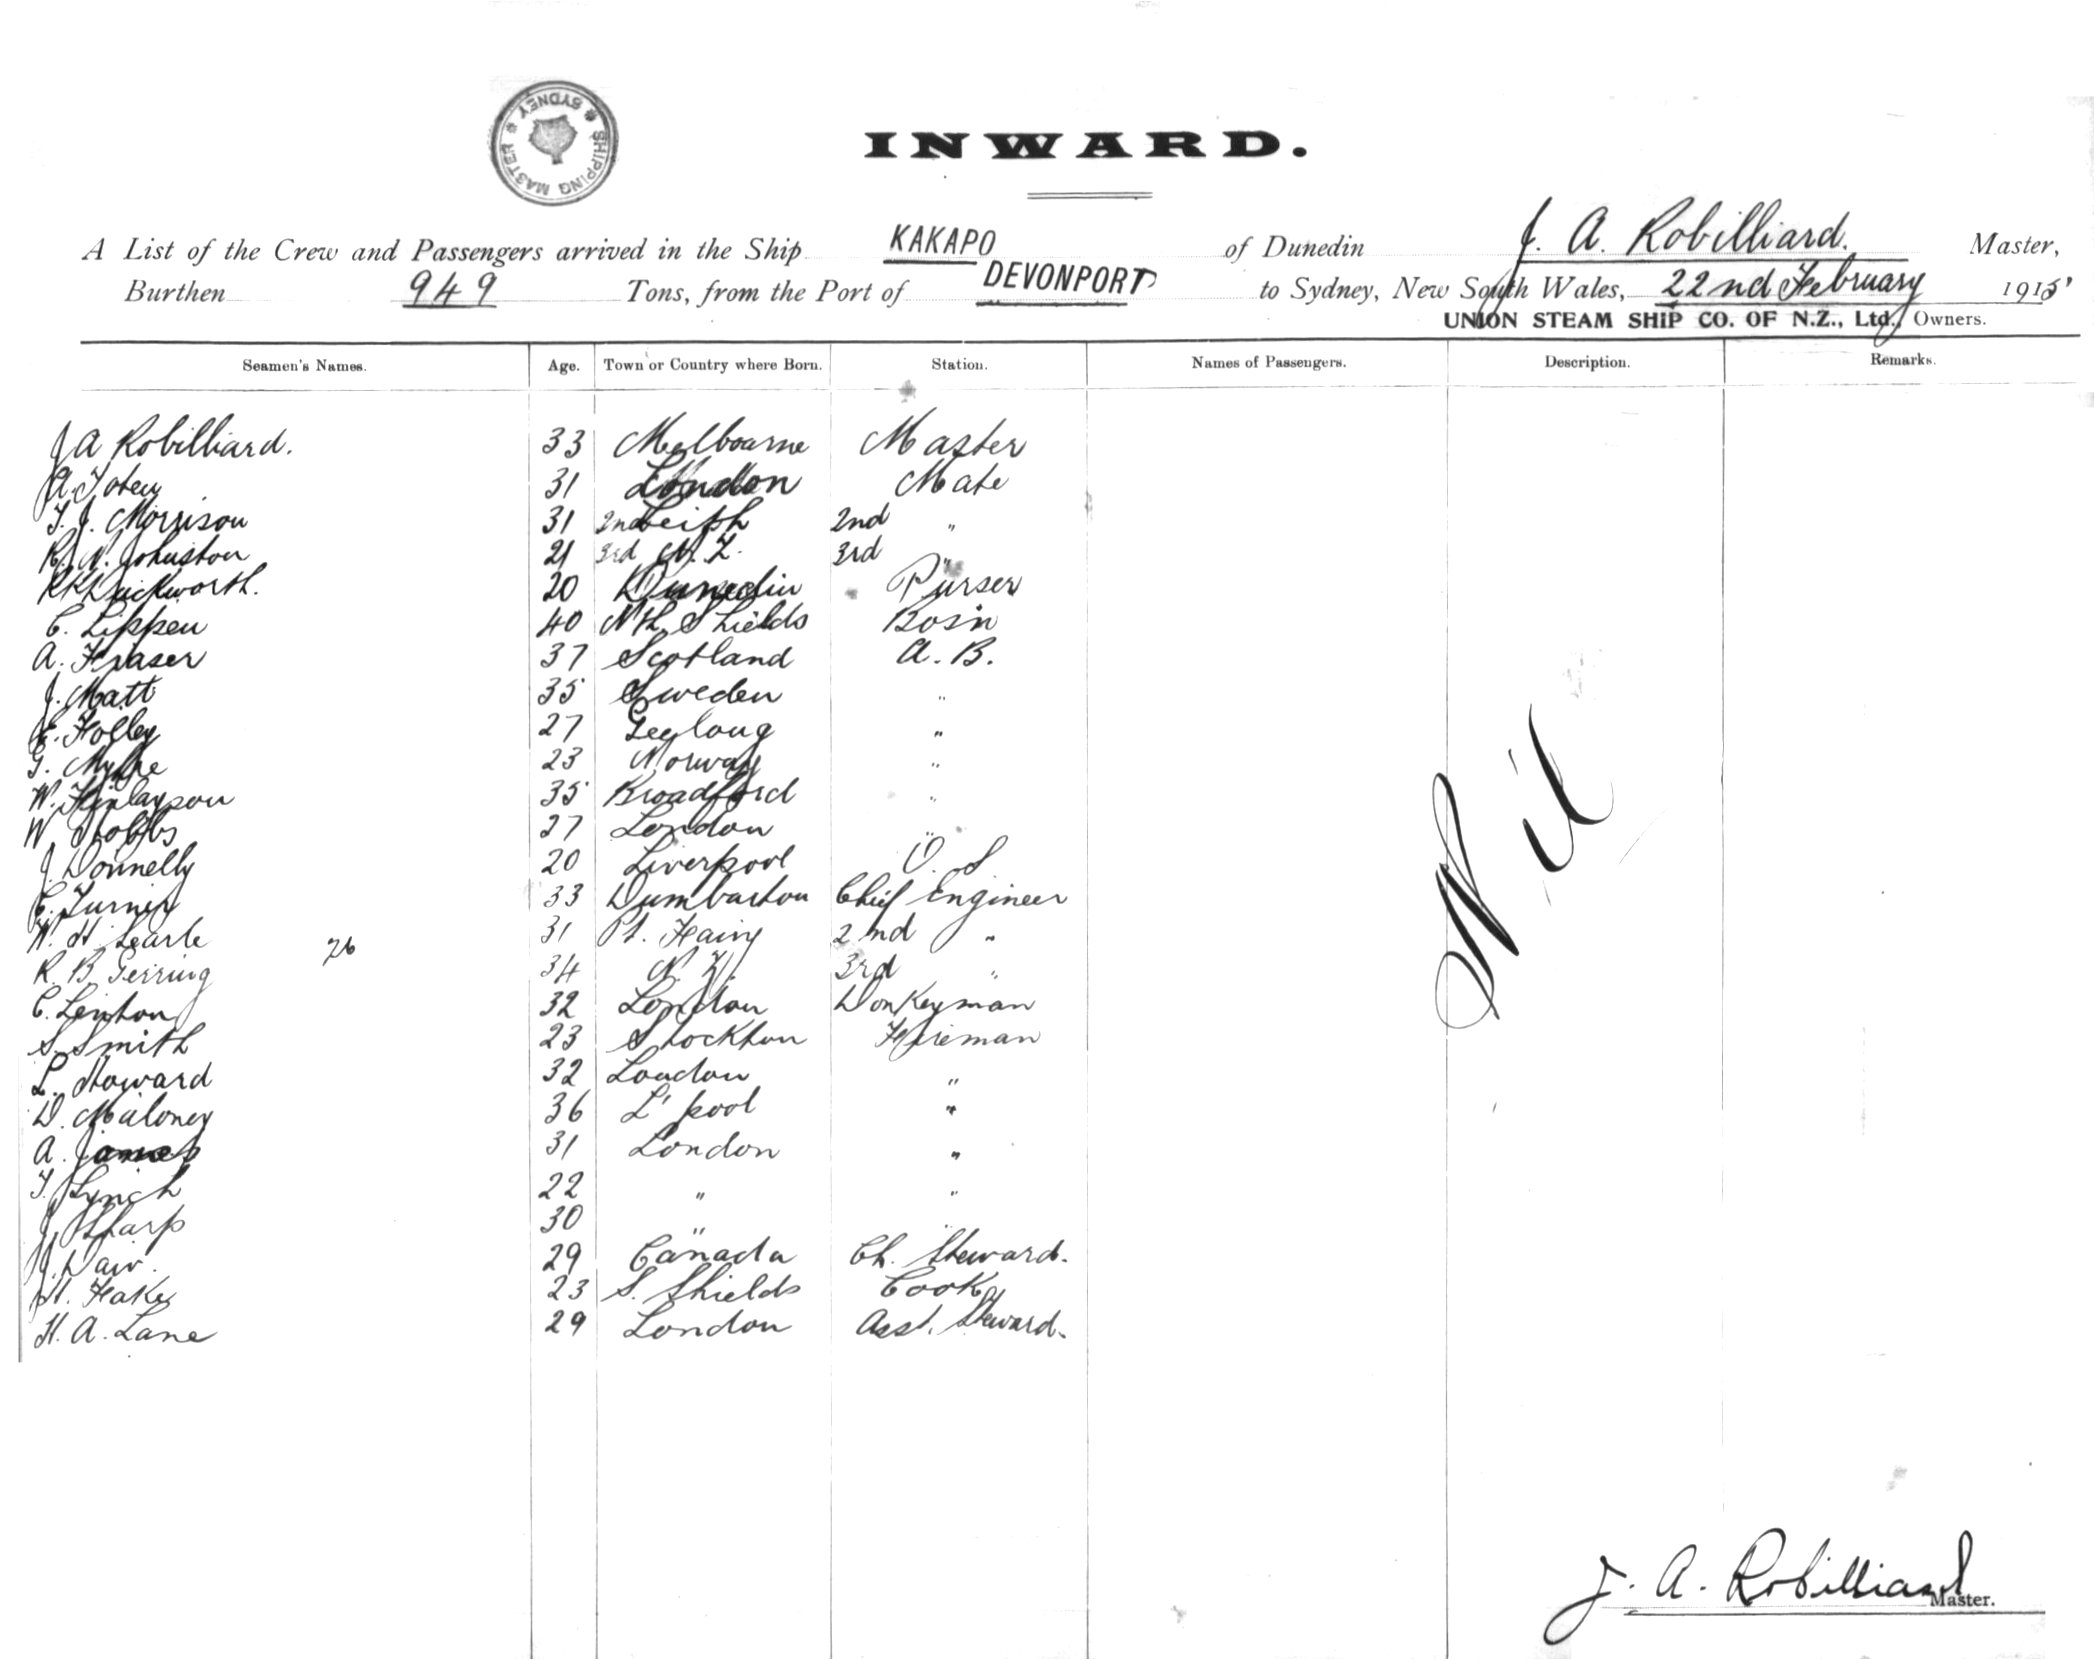 SHIPPING MASTER * SYDNEY *
INWARD.
A List of the Crew and Passengers arrived in the Ship KAKAPO of Dunedin J. A. Robilliard. Master,
Burthen 949 Tons, from the Port of DEVONPORT to Sydney, New South Wales, 22nd February 1915
UNION STEAM SHIP CO. OF N.Z., Ltd., Owners.
Seamen's Names. Age. Town or Country where Born. Station. Names of Passengers. Description. Remarks.
J A Robilliard. 33 Melbourne Master
A. 31 London Mate
T. J. Morrison 31 2nd Leith 2nd "
R. N. Johnston 21 3rd N. Z. 3rd "
Duckworth. 20 Dunedin Purser
C. Lippen 40 Nth Shields Bosin
A. Fraser 37 Scotland A. B.
J. Matt 35 Sweden "
E. Holley 27 Geelong "
G. 23 Norway "
W. Finlayson 35 Broadford "
W Stobbs 27 London "
J. Donnelly 20 Liverpool O. S
E. Turner 33 Dumbarton Chief Engineer
W. H Searle 31 Pt. Fairy 2nd "
26
R. B. Gerring 34 N. Z. 3rd "
C. Lenton 32 London Donkeyman
S. Smith 23 Stockton Fireman
L. Howard 32 London "
D. Maloney 36 L'pool "
A. James 31 London "
T. Lynch 22 " "
J. Sharp 30 "
J. Daw. 29 Canada Ch. Steward.
H. Fakes 23 S. Shields Cook
H. A. Lane 29 London Asst. Steward.
Nil
J. A. Robilliard
Master.